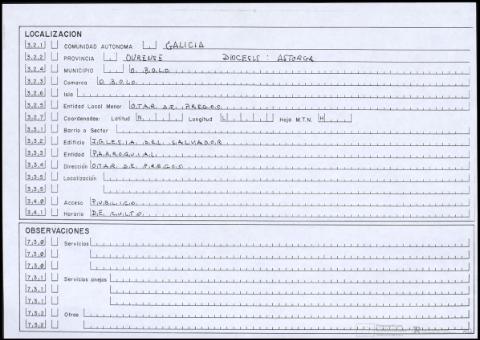 LOCALIZACION
3.2.1 COMUNIDAD AUTONOMA GALICIA
3.2.2 PROVINCIA OURENSE DIOCESIS: ASTORGA
3.2.4 MUNICIPIO O BOLO
3.2.3 Comarca O BOLO
3.2.6 Isla
3.2.5 Entidad Local Menor OTAR DE PREGOS
3.2.7 Coordenadas: Latitud Longitud Hoja M.T.N.
3.3.1 Barrio o Sector
3.3.2 Edificio IGLESIA DEL SALVADOR
3.3.3 Entidad PARROQUIAL
3.3.4 Dirección OTAR DE PREGOS
3.3.5 Localización
3.3.5
3.4.0 Acceso PUBLICO
3.4.1 Horario DE CULTO
OBSERVACIONES
7.3.0 Servicios
7.3.0
7.3.0
7.3.1 Servicios anejos
7.3.1
7.3.1
7.3.2 Otros
7.3.2